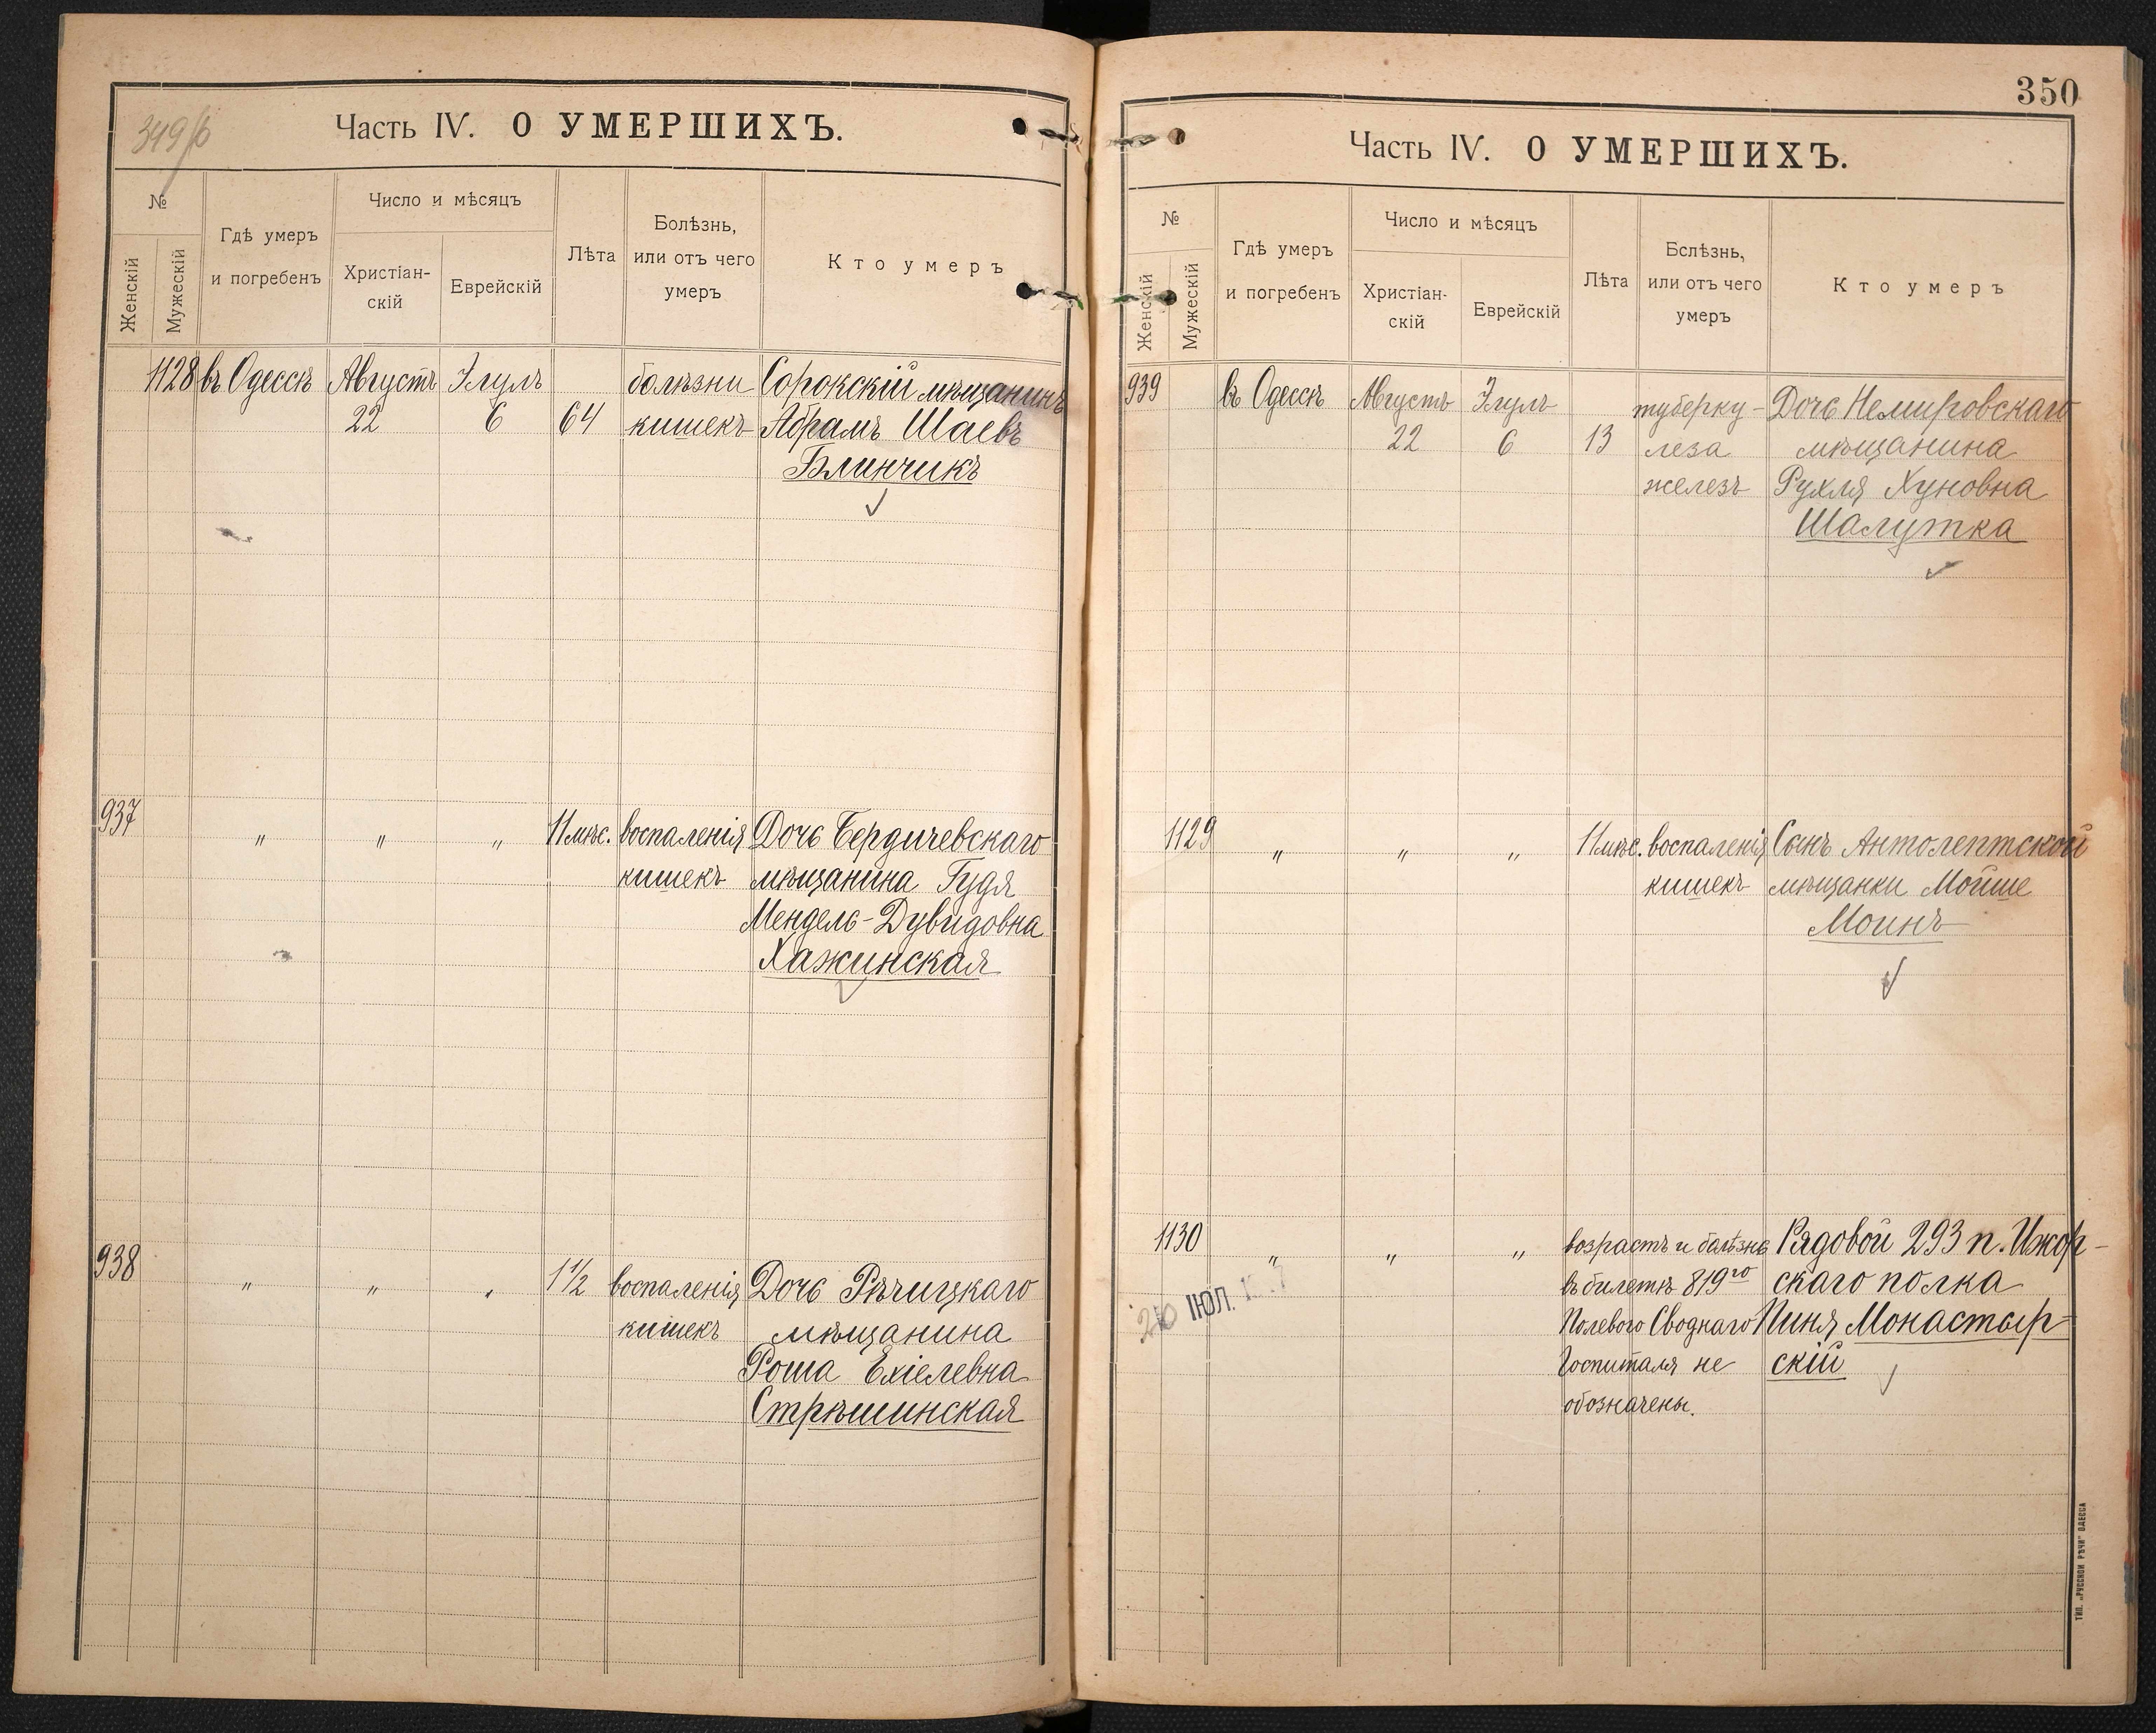 349/б
Часть IV. О УМЕРШИХЪ.
№
Женскій
Мужескій
Гдѣ умеръ
и погребенъ
Число и мѣсяцъ
Христіан-
скій
Еврейскій
Лѣта
Болѣзнь,
или отъ чего
умеръ
Кто умеръ
1128 въ Одессѣ Августъ Элулъ болѣзни Сорокскій мѣщанинъ
22 6 64 кишекъ Абрамъ Шаевъ
Блинчикъ
937 " " " 11 мѣс. воспаленія Дочь Бердичевскаго
кишекъ мѣщанина Гудя
Мендель-Дувидовна
Хажинская
938 " " " 1 1/2 воспаленія Дочь Рѣчицкаго
кишекъ мѣщанина
Роша Ехіелевна
Стрѣшинская
350
Часть IV. О УМЕРШИХЪ.
№
Женскій
Мужескій
Гдѣ умеръ
и погребенъ
Число и мѣсяцъ
Христіан-
скій
Еврейскій
Лѣта
Бслѣзнь,
или отъ чего
умеръ
Кто умеръ
939 въ Одессѣ Августъ Элулъ туберку- Дочь Немировскаго
22 6 13 леза мѣщанина
железъ Рухля Хуновна
Шалутка
1129 " " " 11 мѣс. воспаленія Сынъ Антолептской
кишекъ мѣщанки Мойше
Моинъ
1130 " " " возрастъ и болѣзнь Рядовой 293 п. Ижор-
въ билетѣ 819го скаго полка
Полевого Своднаго Пиня Монастыр-
Госпиталя не скій
обозначены.
20 ІЮЛ.
ТИП. „РУССКОЙ РѢЧИ" ОДЕССА